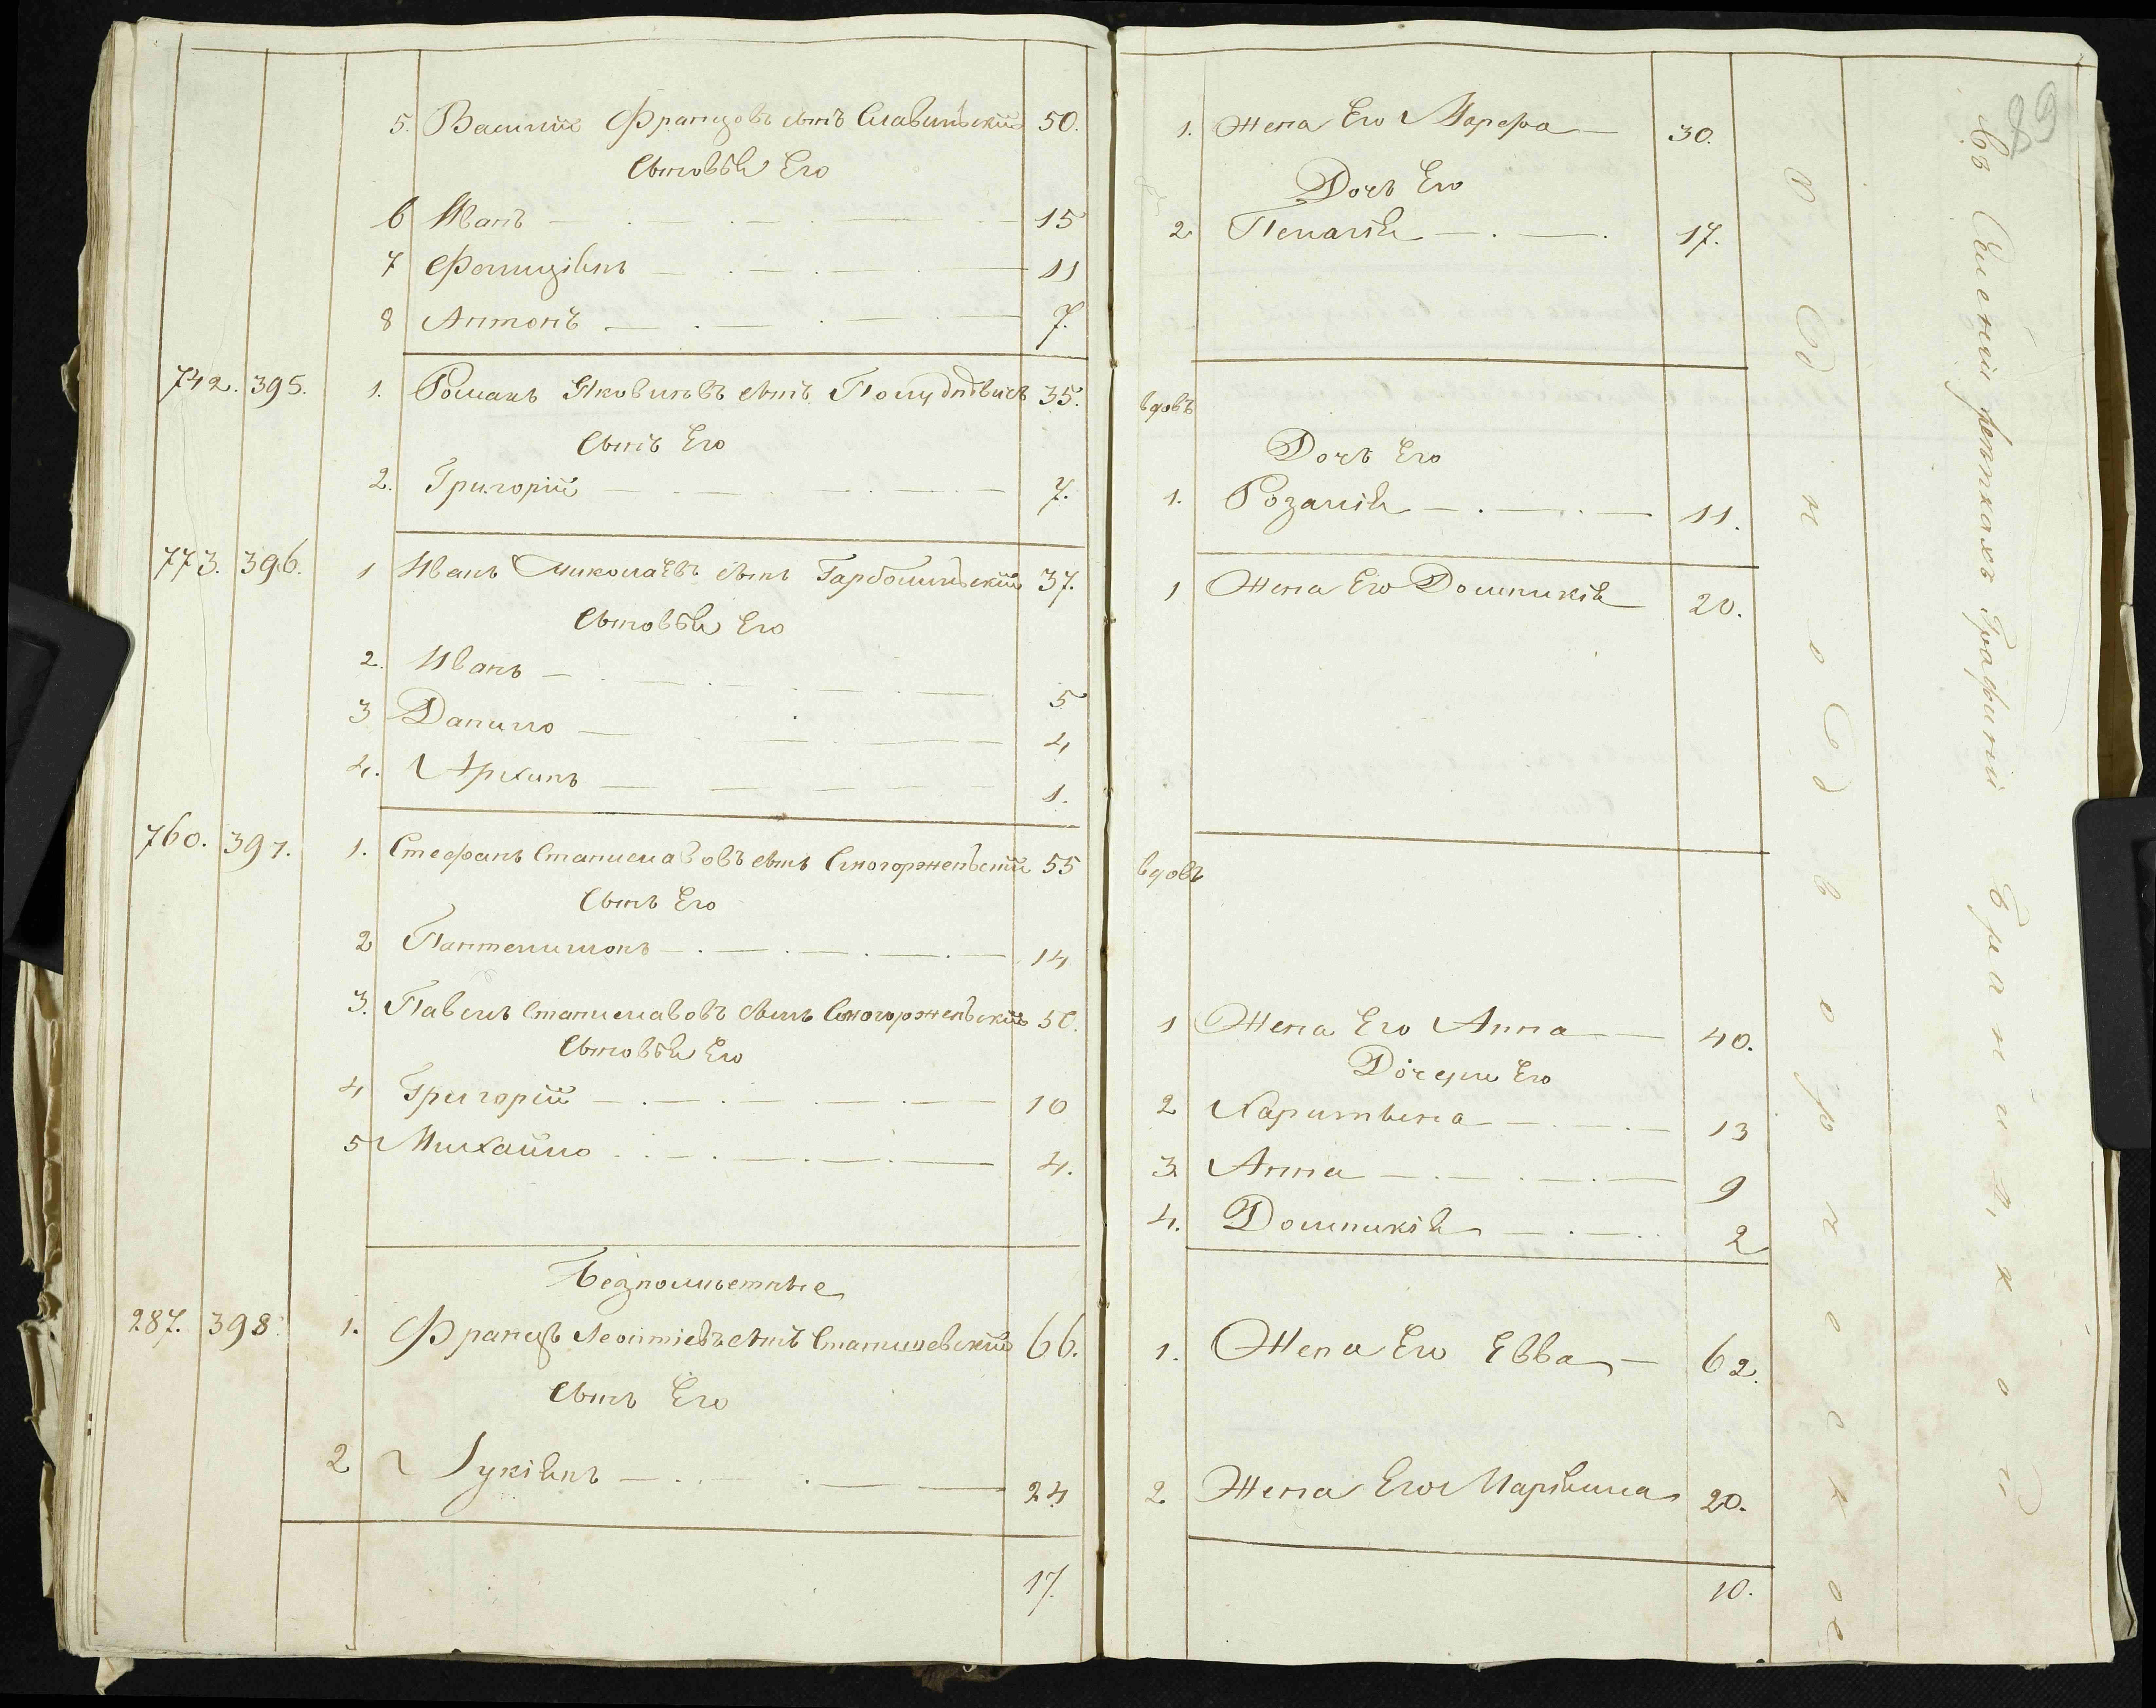 5. Василий Францовъ сынъ Славиньский 50.
Сыновья Его
6 Иванъ 15
7 Фелициянъ 11
8 Антонъ 7.
742. 395. 1. Романъ Яковлевъ сынъ 35.
Сынъ Его
2. Григорий 7.
773. 396. 1 Иванъ Николаевъ сынъ Гарболиньский 37.
Сыновья Его
2. Иванъ 5
3 Данило 4
4. Архипъ 1.
760. 397. 1. Стефанъ Станиславовъ сынъ 55
Сынъ Его
2 Пантелимонъ 14
3. Павелъ Станиславовъ сынъ 50.
Сыновья Его
4 Григорий 10
5 Михайло 4.
Безпоместные
287. 398. 1. Францъ Леонтиевъ сынъ 66.
Сынъ Его
2 Лукиянъ 24
17.
89
1. Жена Его Марфа 30.
Дочь Его
2 Пелагия 17.
вдовъ
Дочь Его
1. Розалия 11.
1 Жена Его Доминикия 20.
вдовъ
1 Жена Его Анна 40.
Дочери Его
2 Харитына 13
3. Анна 9
4. Доминикия 2
1. Жена Его Евва 62.
2 Жена Его Марияна 20.
10.
Однодворческое
Въ Селении Графини Браницкой